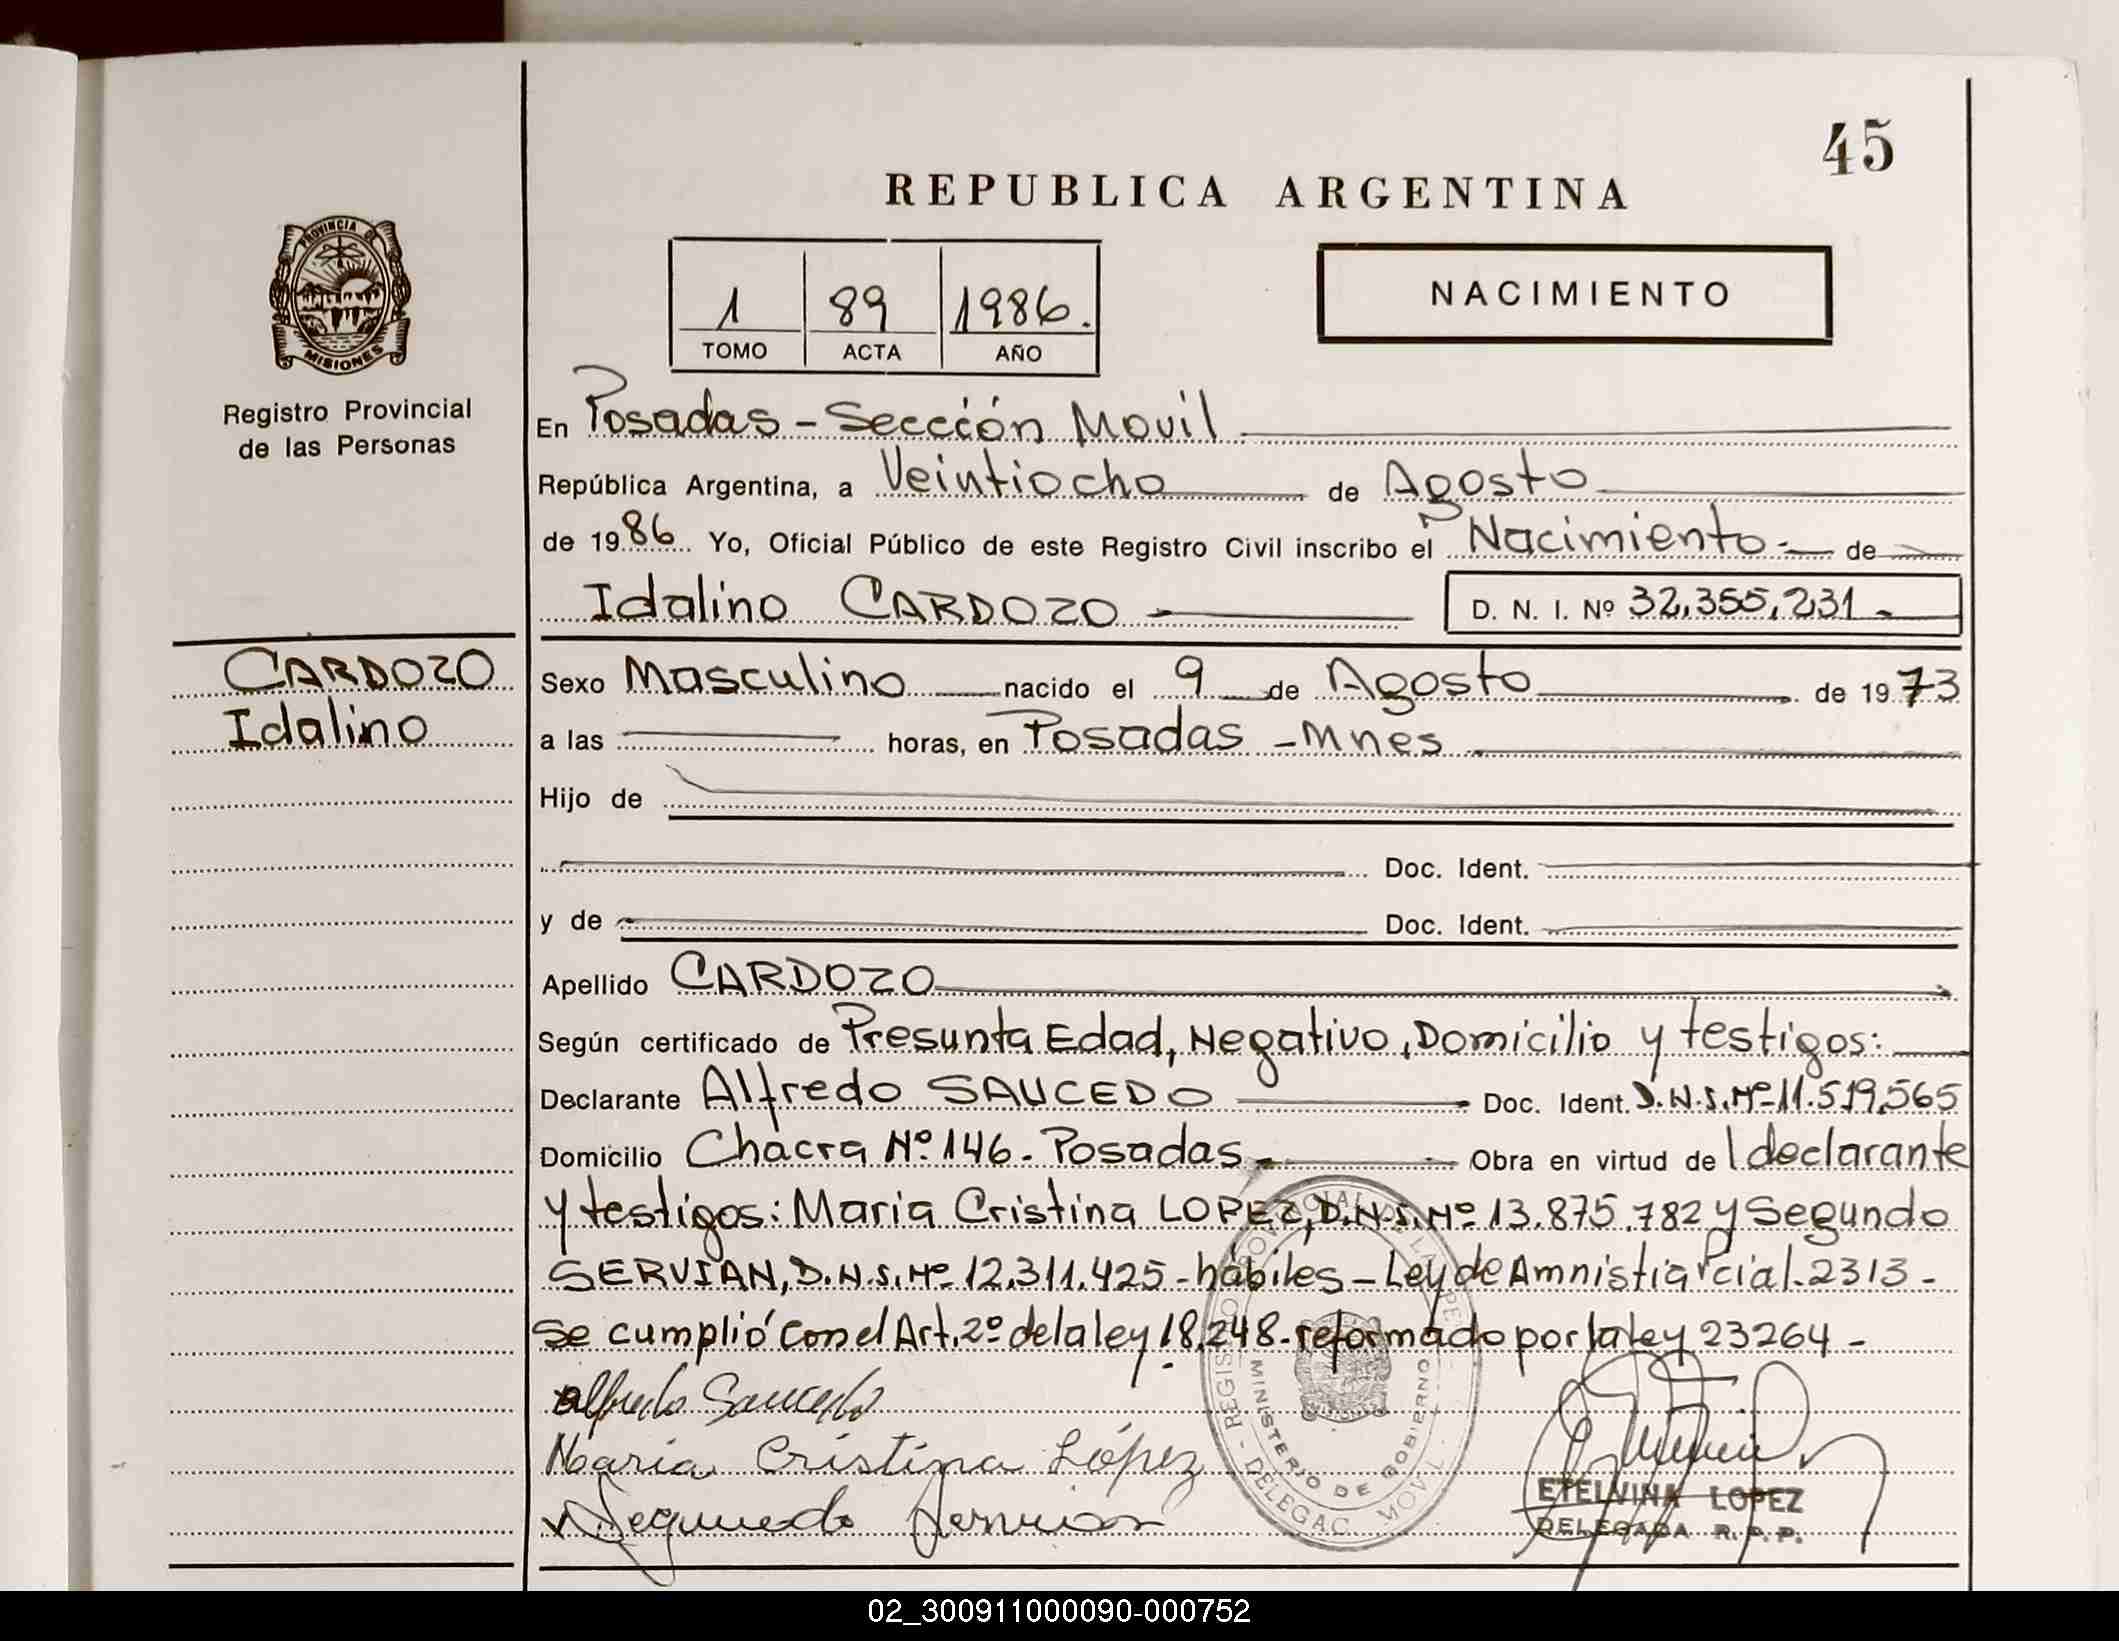 45
REPUBLICA ARGENTINA
PROVINCIA DE
MISIONES
1 89 1986.
TOMO ACTA AÑO
NACIMIENTO
Registro Provincial
de las Personas
En Posadas - Sección Movil
República Argentina, a Veintiocho de Agosto
de 1986 Yo, Oficial Público de este Registro Civil inscribo el Nacimiento.- de
Idalino CARDOZO
D. N. I. Nº 32,355,231.-
CARDOZO
Idalino
Sexo Masculino nacido el 9 de Agosto de 1973
a las horas, en Posadas - Mnes
Hijo de
Doc. Ident.
y de Doc. Ident.
Apellido CARDOZO
Según certificado de Presunta Edad, Negativo, Domicilio y testigos:
Declarante Alfredo SAUCEDO Doc. Ident. D.N.I. Nº 11.519.565
Domicilio Chacra Nº 146. Posadas Obra en virtud del declarante
y testigos: Maria Cristina LOPEZ, D.N.I. Nº 13.875.782 y Segundo
SERVIAN, D.N.I. Nº 12.311.425 - hábiles - Ley de Amnistia Pcial. 2313 -
Se cumplió con el Art. 2º de la ley 18.248. reformado por la ley 23264 -
Alfredo Saucedo
Maria Cristina López
Segundo Servian
REGISTRO PROVINCIAL DE LAS PE
MINISTERIO DE GOBIERNO
DELEGAC. MOVIL
ETELVINA LOPEZ
DELEGADA R. P. P.
02_300911000090-000752